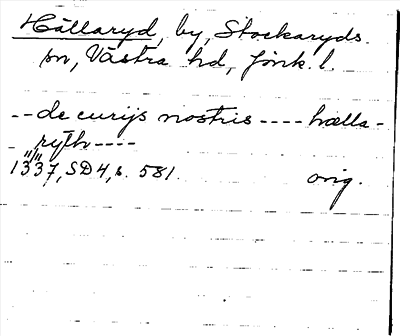 Hällaryd, by, Stockaryds
sn, Västra hd, Jönk. l.
-- de curijs nostris ---- hælla-
- rÿth ----
1337, SD 4, s. 581. orig.